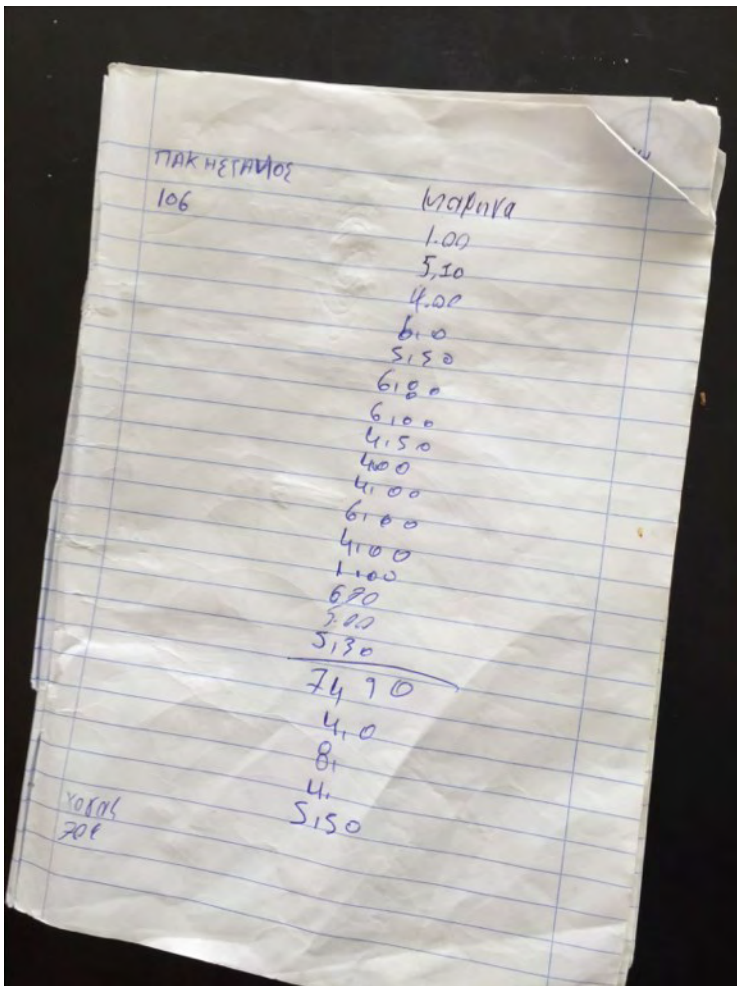 ΠΑΚΗΣΤΑΝΟΣ
106
μαρηνα
1.00
5,10
4.00
6,0
5,50
6,00
6,00
4,50
400
4,00
6,00
4,00
1,00
690
5.00
5,30
7490
4,0
8,
4,
5,50
70€